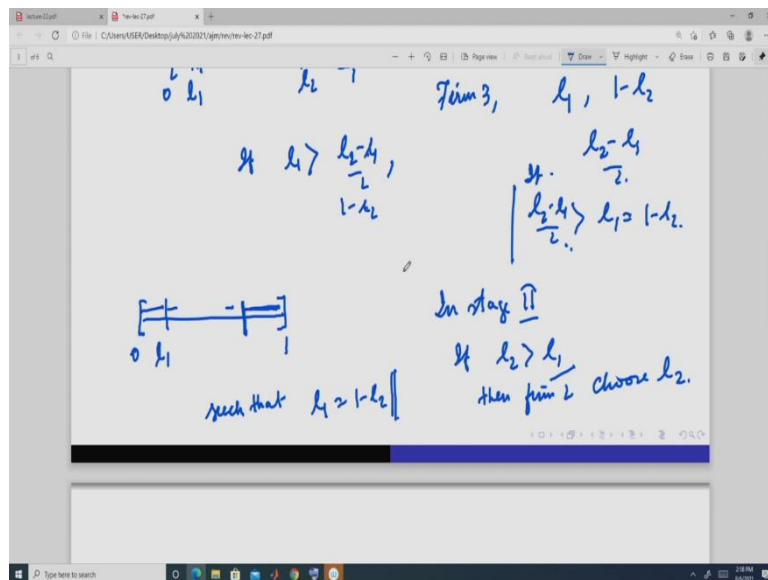 lecture-22.pdf
*rev-lec-27.pdf
File | C:/Users/USER/Desktop/july%202021/ajm/rev/rev-lec-27.pdf
3 of 6
Page view
Read aloud
Draw
Highlight
Erase
0 l₁ l₂ 1
Firm 3, l₁, 1-l₂
(l₂-l₁)/2.
If l₁ > (l₂-l₁)/2,
1-l₂
If.
(l₂-l₁)/2. > l₁ = 1-l₂.
0 l₁ 1
such that l₁ = 1-l₂
In stage II
If l₂ > l₁
then firm 2 choose l₂.
Type here to search
2:18 PM